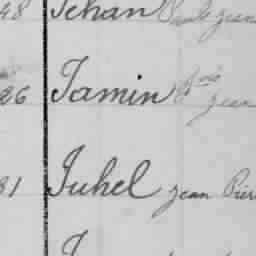 48 Jehan Jean
26 Jamin Jean
81 Juhel Jean Pier